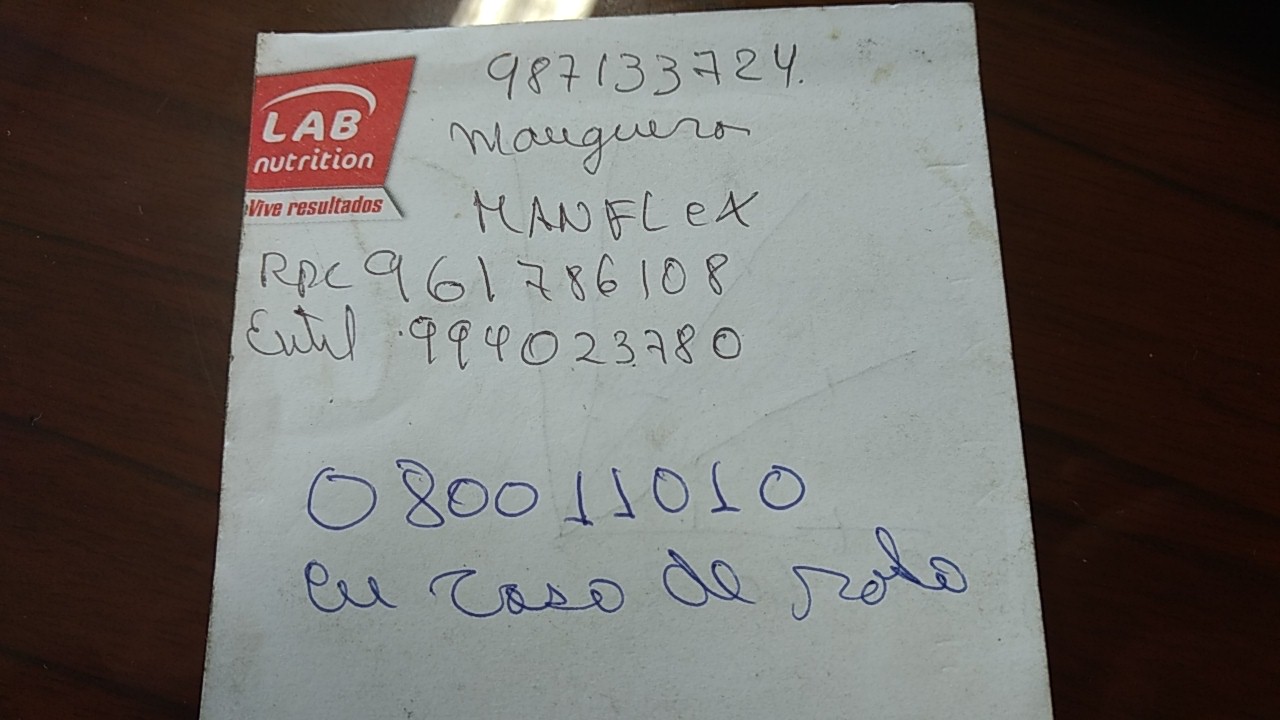 987133724.
LAB
nutrition
Vive resultados
Manguera
MANFLeX
RPC 961786108
Entel .994023780
080011010
en caso de robo